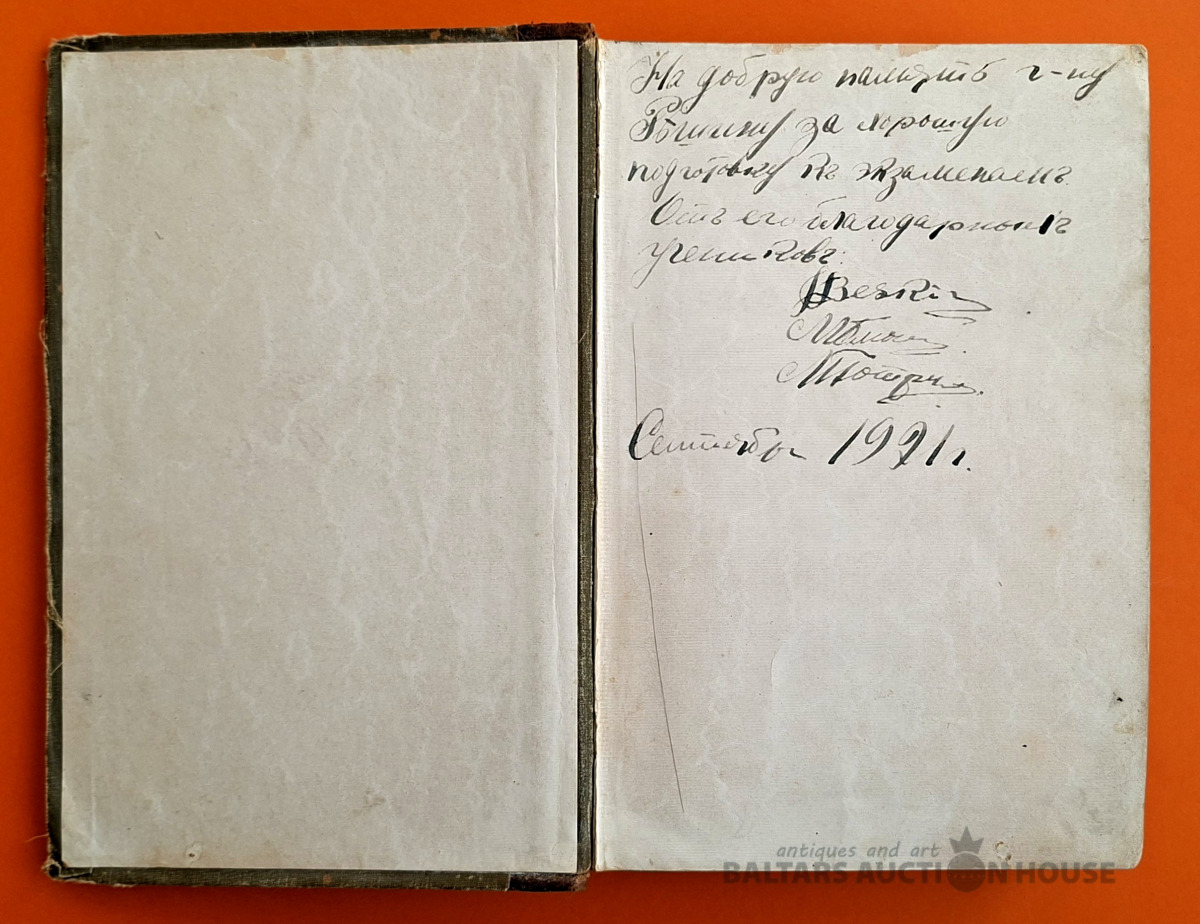 На добрую память г-ну
за хорошую
подготовку къ экзаменаемъ.
Отъ его благодарныхъ
учениковъ:
Сентябрь 1921 г.
antiques and art
BALTARS AUCTION HOUSE